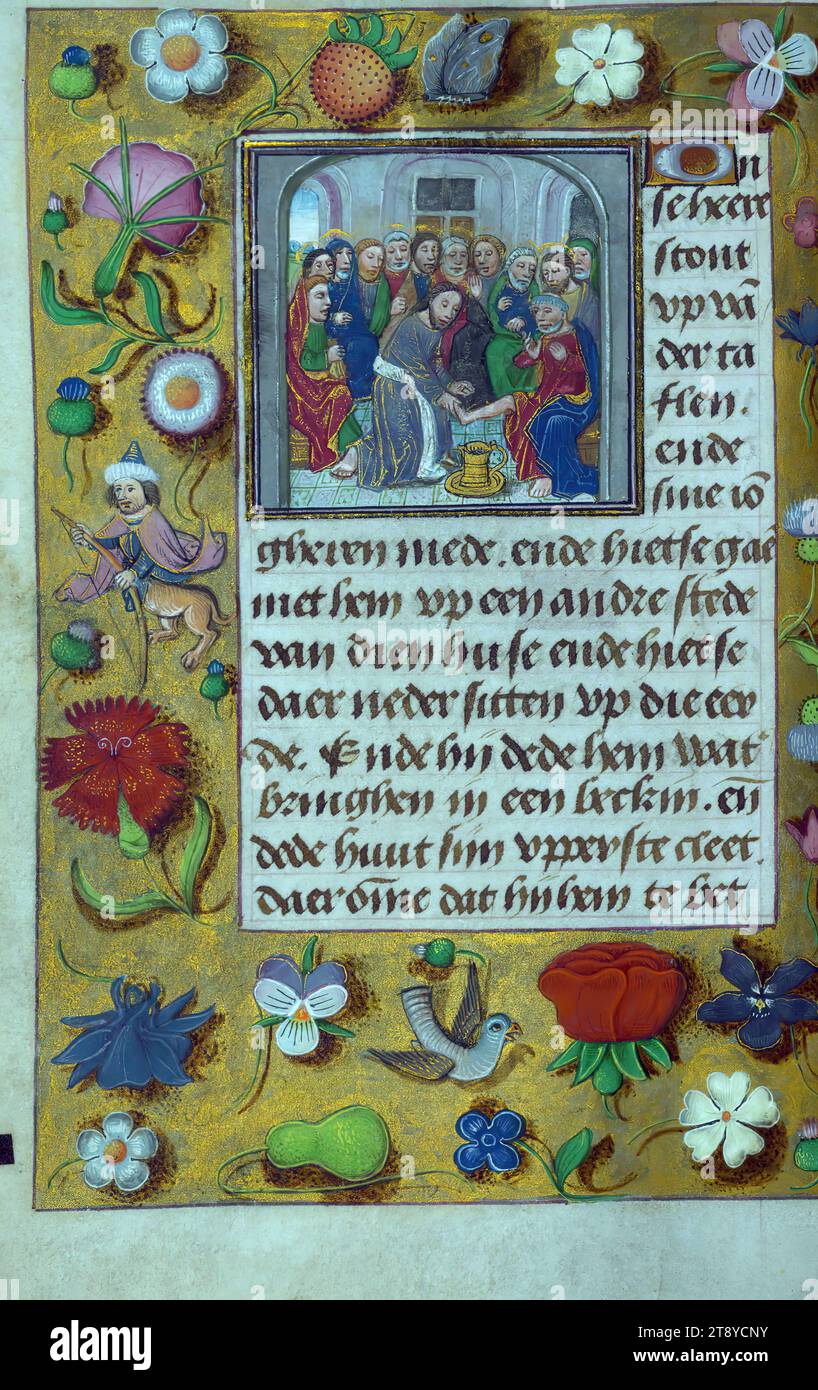 On
se heere
stont
vp vā
der ta
flen.
ende
sine iō
gheren mede. ende hietse gaē
met hem vp een andre stede
van dien huse ende hietse
daer neder sitten vp die eer
de. Ende hij dede hem wat
bringhen in een beckin. eñ
dede huut sijn vpperste cleet.
daer ōme dat hij hem te bet
alamy
a
alamy
Image ID: 2T8YCNY
www.alamy.com